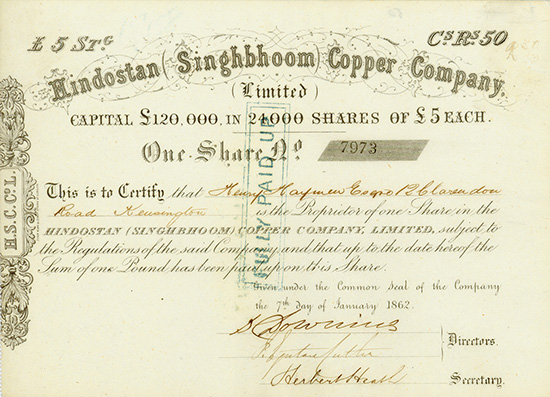 £ 5 STG
CS RS 50
Hindostan (Singhbhoom) Copper Company.
(Limited)
CAPITAL £120,000, IN 24000 SHARES OF £5 EACH.
One Share No 7973
This is to Certify that Henry Haymen Esqre Clarendon
Road Kensington is the Proprietor of one Share in the
HINDOSTAN (SINGHBHOOM) COPPER COMPANY, LIMITED, subject to
the Regulations of the said Company, and that up to the date hereof the
Sum of one Pound has been paid up on this Share.
Given under the Common Seal of the Company
the 7th day of January 1862.
Directors.
Herbert Heath
Secretary.
FULLY PAID UP
H.S.C.Co. L.